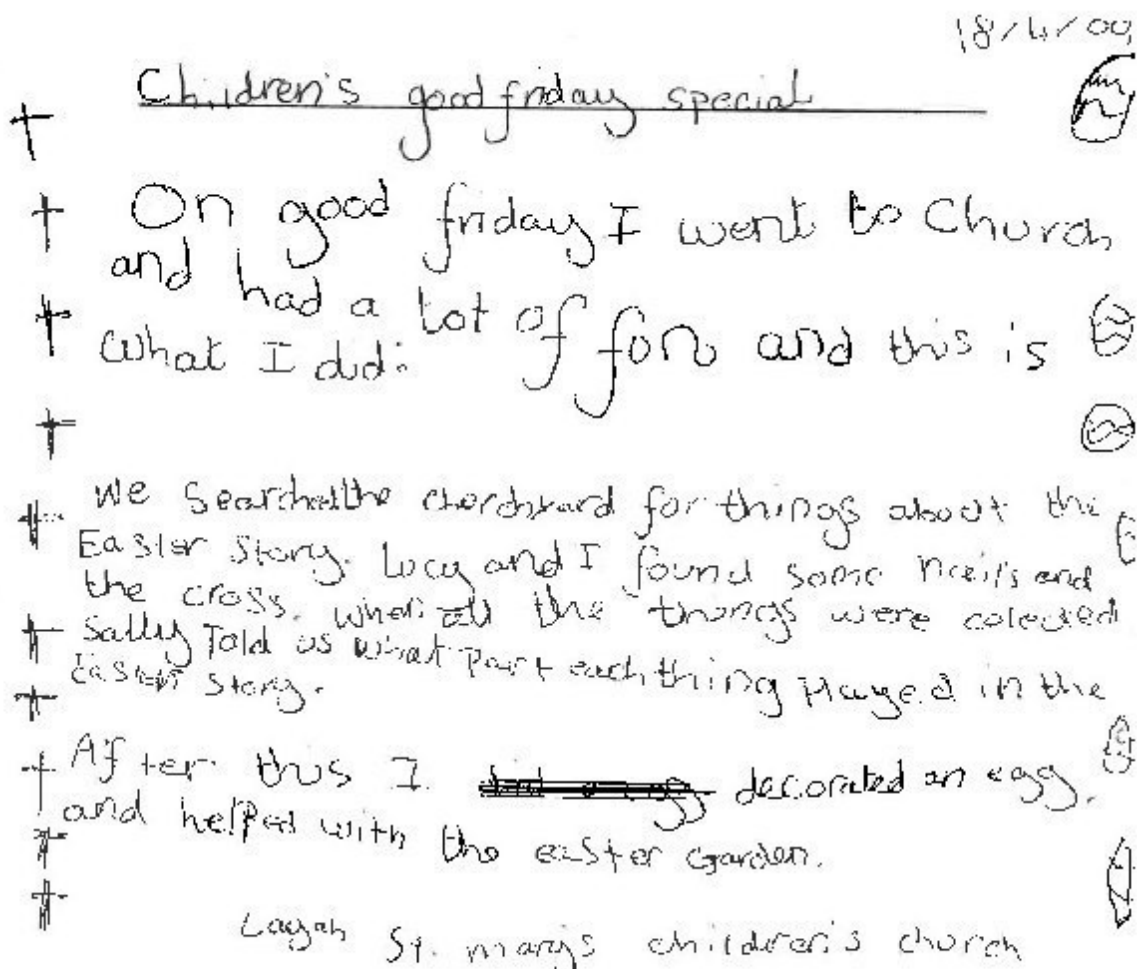 18/4/00
Children's good friday special
On good friday I went to Church
and had a lot of fon and this is
what I did:
We searched the chorchyard for things about the
Easter Story. Lucy and I found some nails and
the cross. when all the things were colected
Sally Told us what part each thing Played in the
Easter Story.
After this I decorated an egg.
and helped with the easter garden.
St. mary's children's church